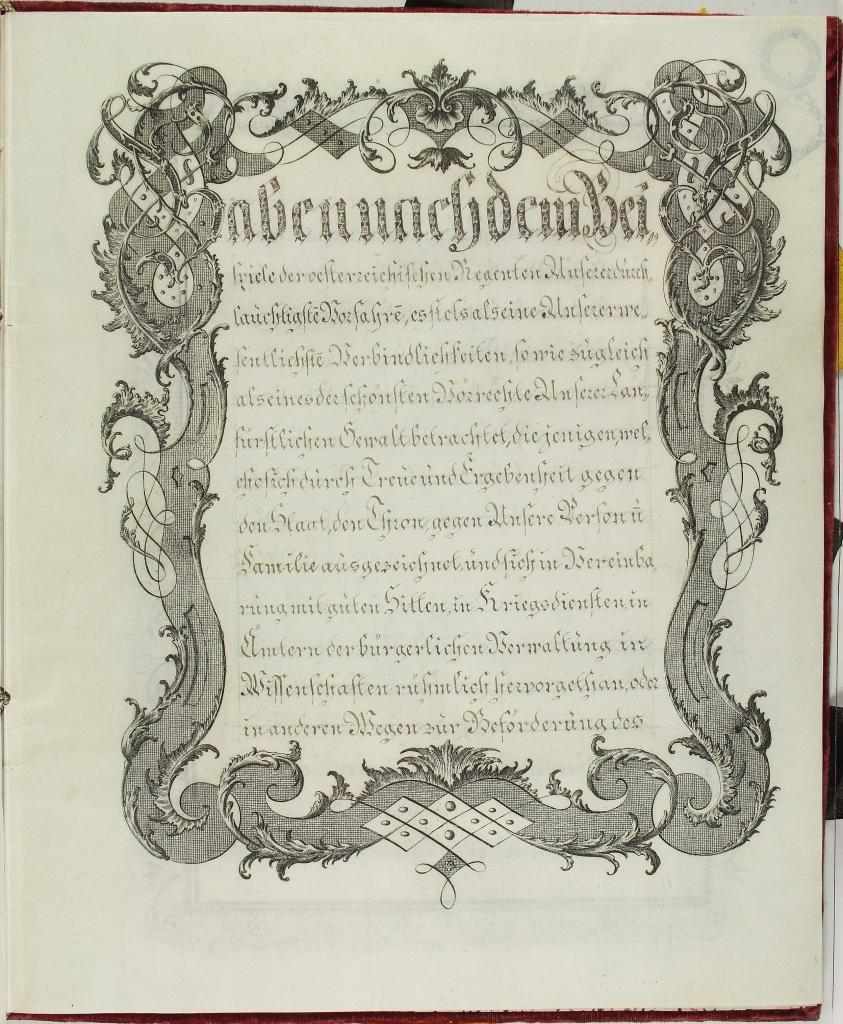 aben nach dem Bei„
spiele der oesterreichischen Regenten Unserer durch„
lauchtigstē Vorfahrē, es stets als eine Unserer we„
sentlichstē Verbindlichkeiten, so wie zugleich
als eines der schönsten Vorrechte Unserer Lan„
fürstlichen Gewalt betrachtet, die jenigen, wel„
che sich durch Treue und Ergebenheit gegen
den Staat, den Thron, gegen Unsere Person u̅
Familie ausgezeichnet, und sich in Vereinba„
rung mit guten Sitten, in Kriegsdiensten, in
Ämtern der bürgerlichen Verwaltung in
Wissenschaften rühmlich hervorgethan, oder
in anderen Wegen zur Beförderung des